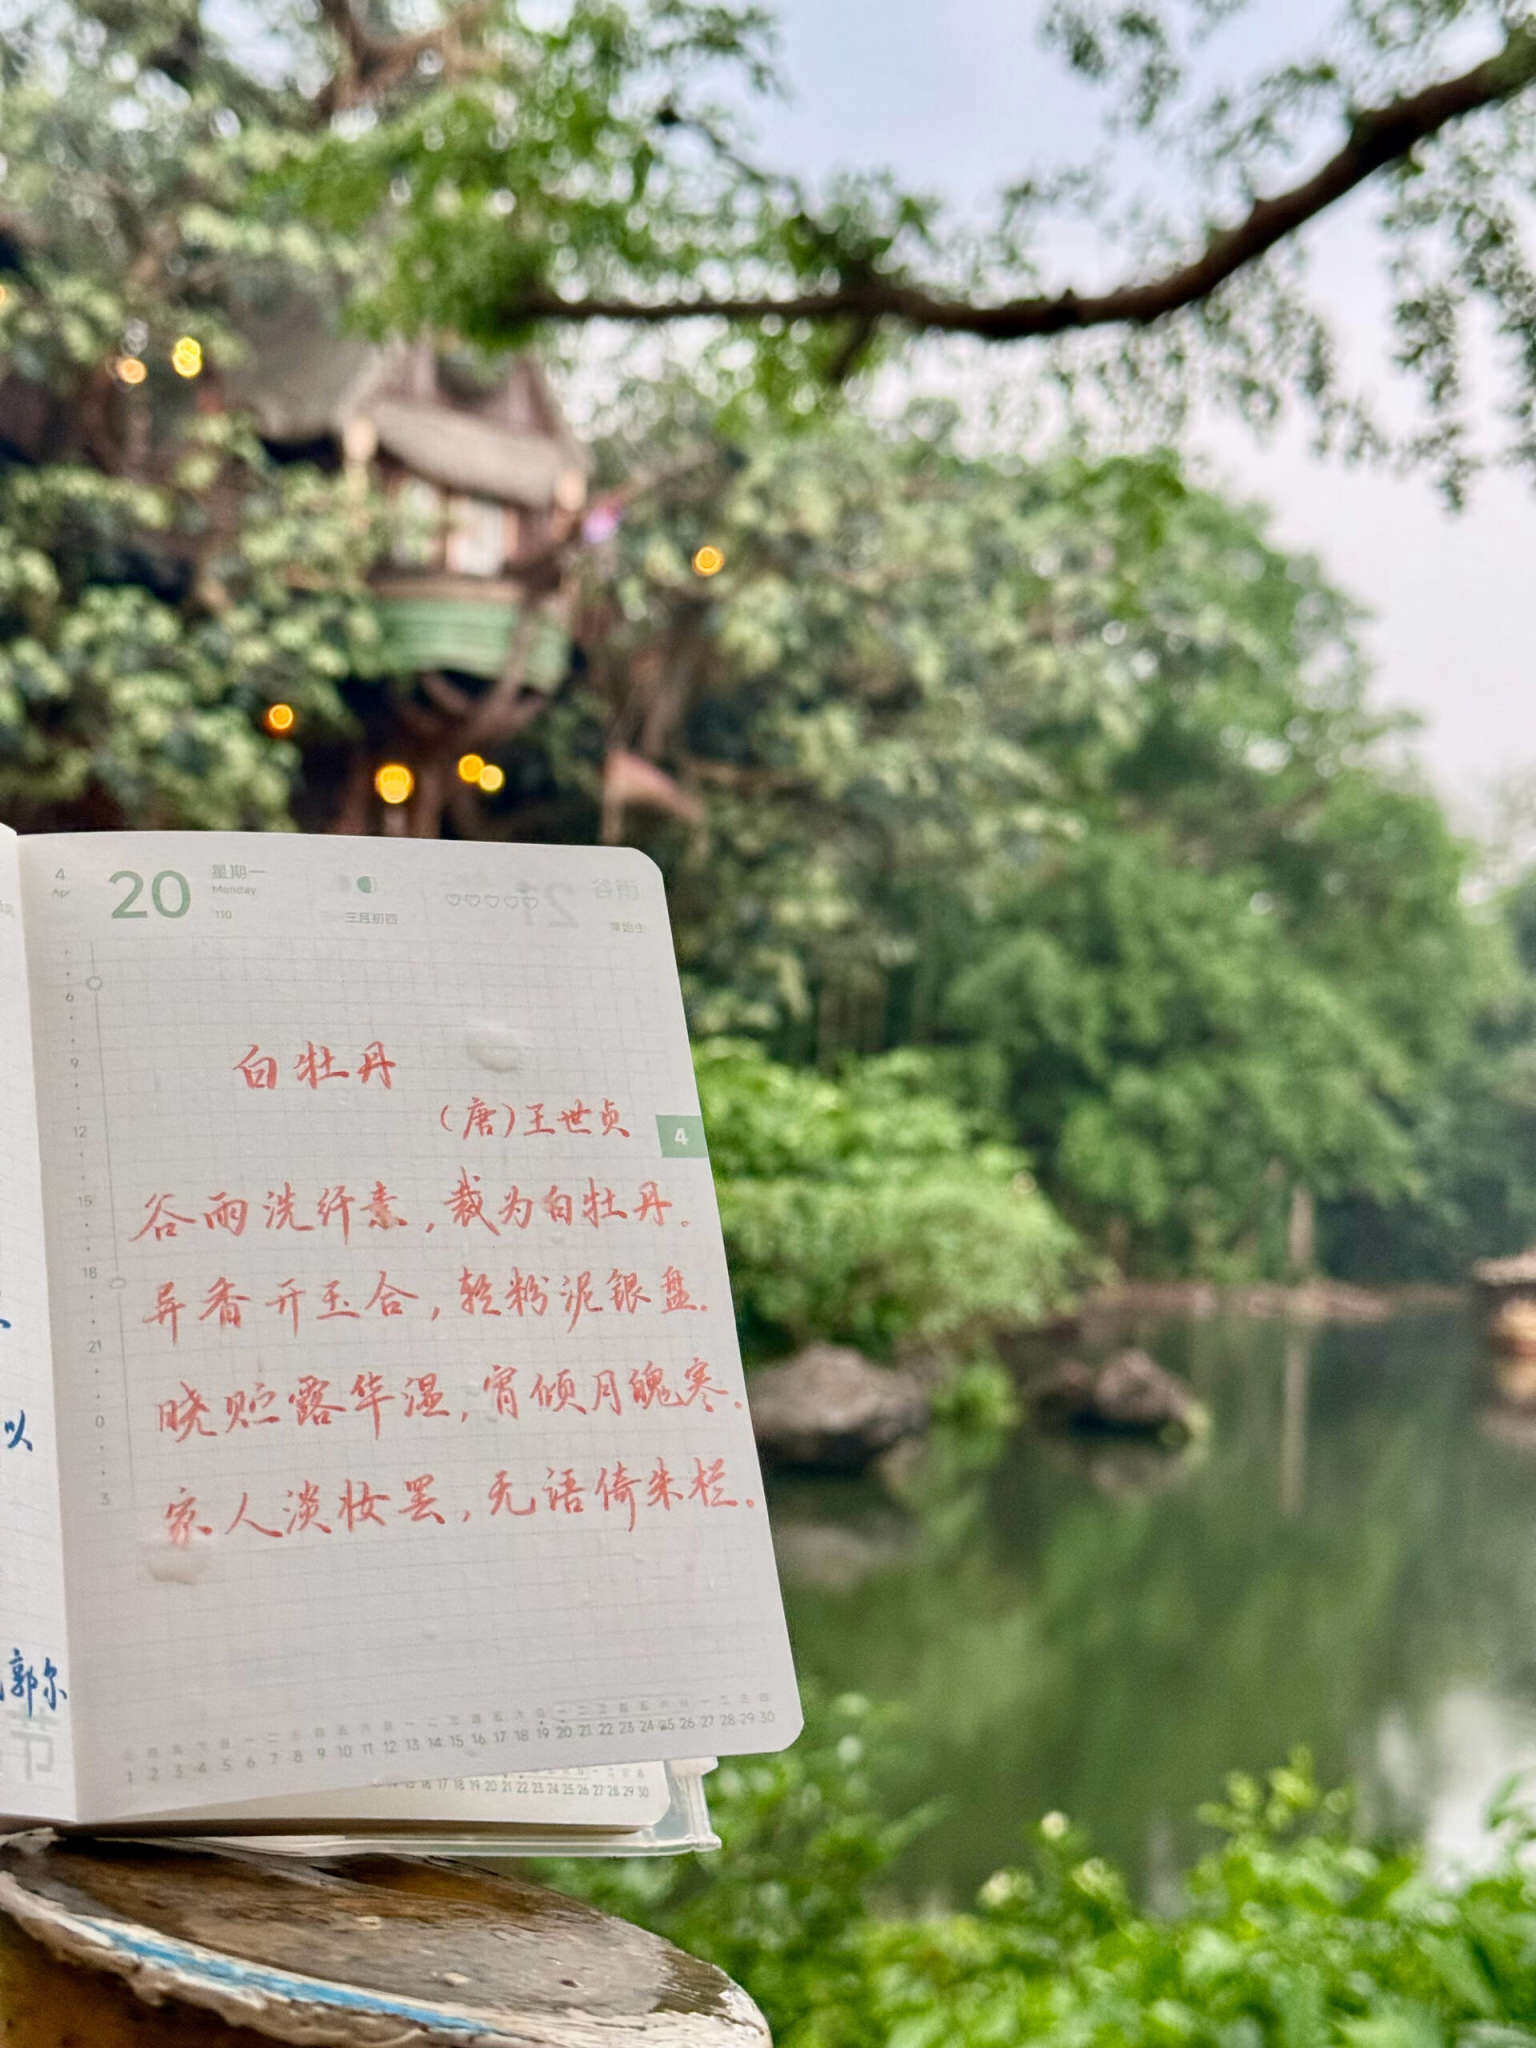 4
Apr
20
星期一
Monday
110
三月初四
谷雨
萍始生
白牡丹
(唐)王世贞
4
谷雨洗纤素,裁为白牡丹。
异香开玉合,轻粉泥银盘.
晓贮露华湿,宵倾月魄寒.
家人淡妆罢,无语倚朱栏。
6
9
12
15
18
21
0
3
以
郭尔
节
1 2 3 4 5 6 7 8 9 10 11 12 13 14 15 16 17 18 19 20 21 22 23 24 25 26 27 28 29 30
16 17 18 19 20 21 22 23 24 25 26 27 28 29 30